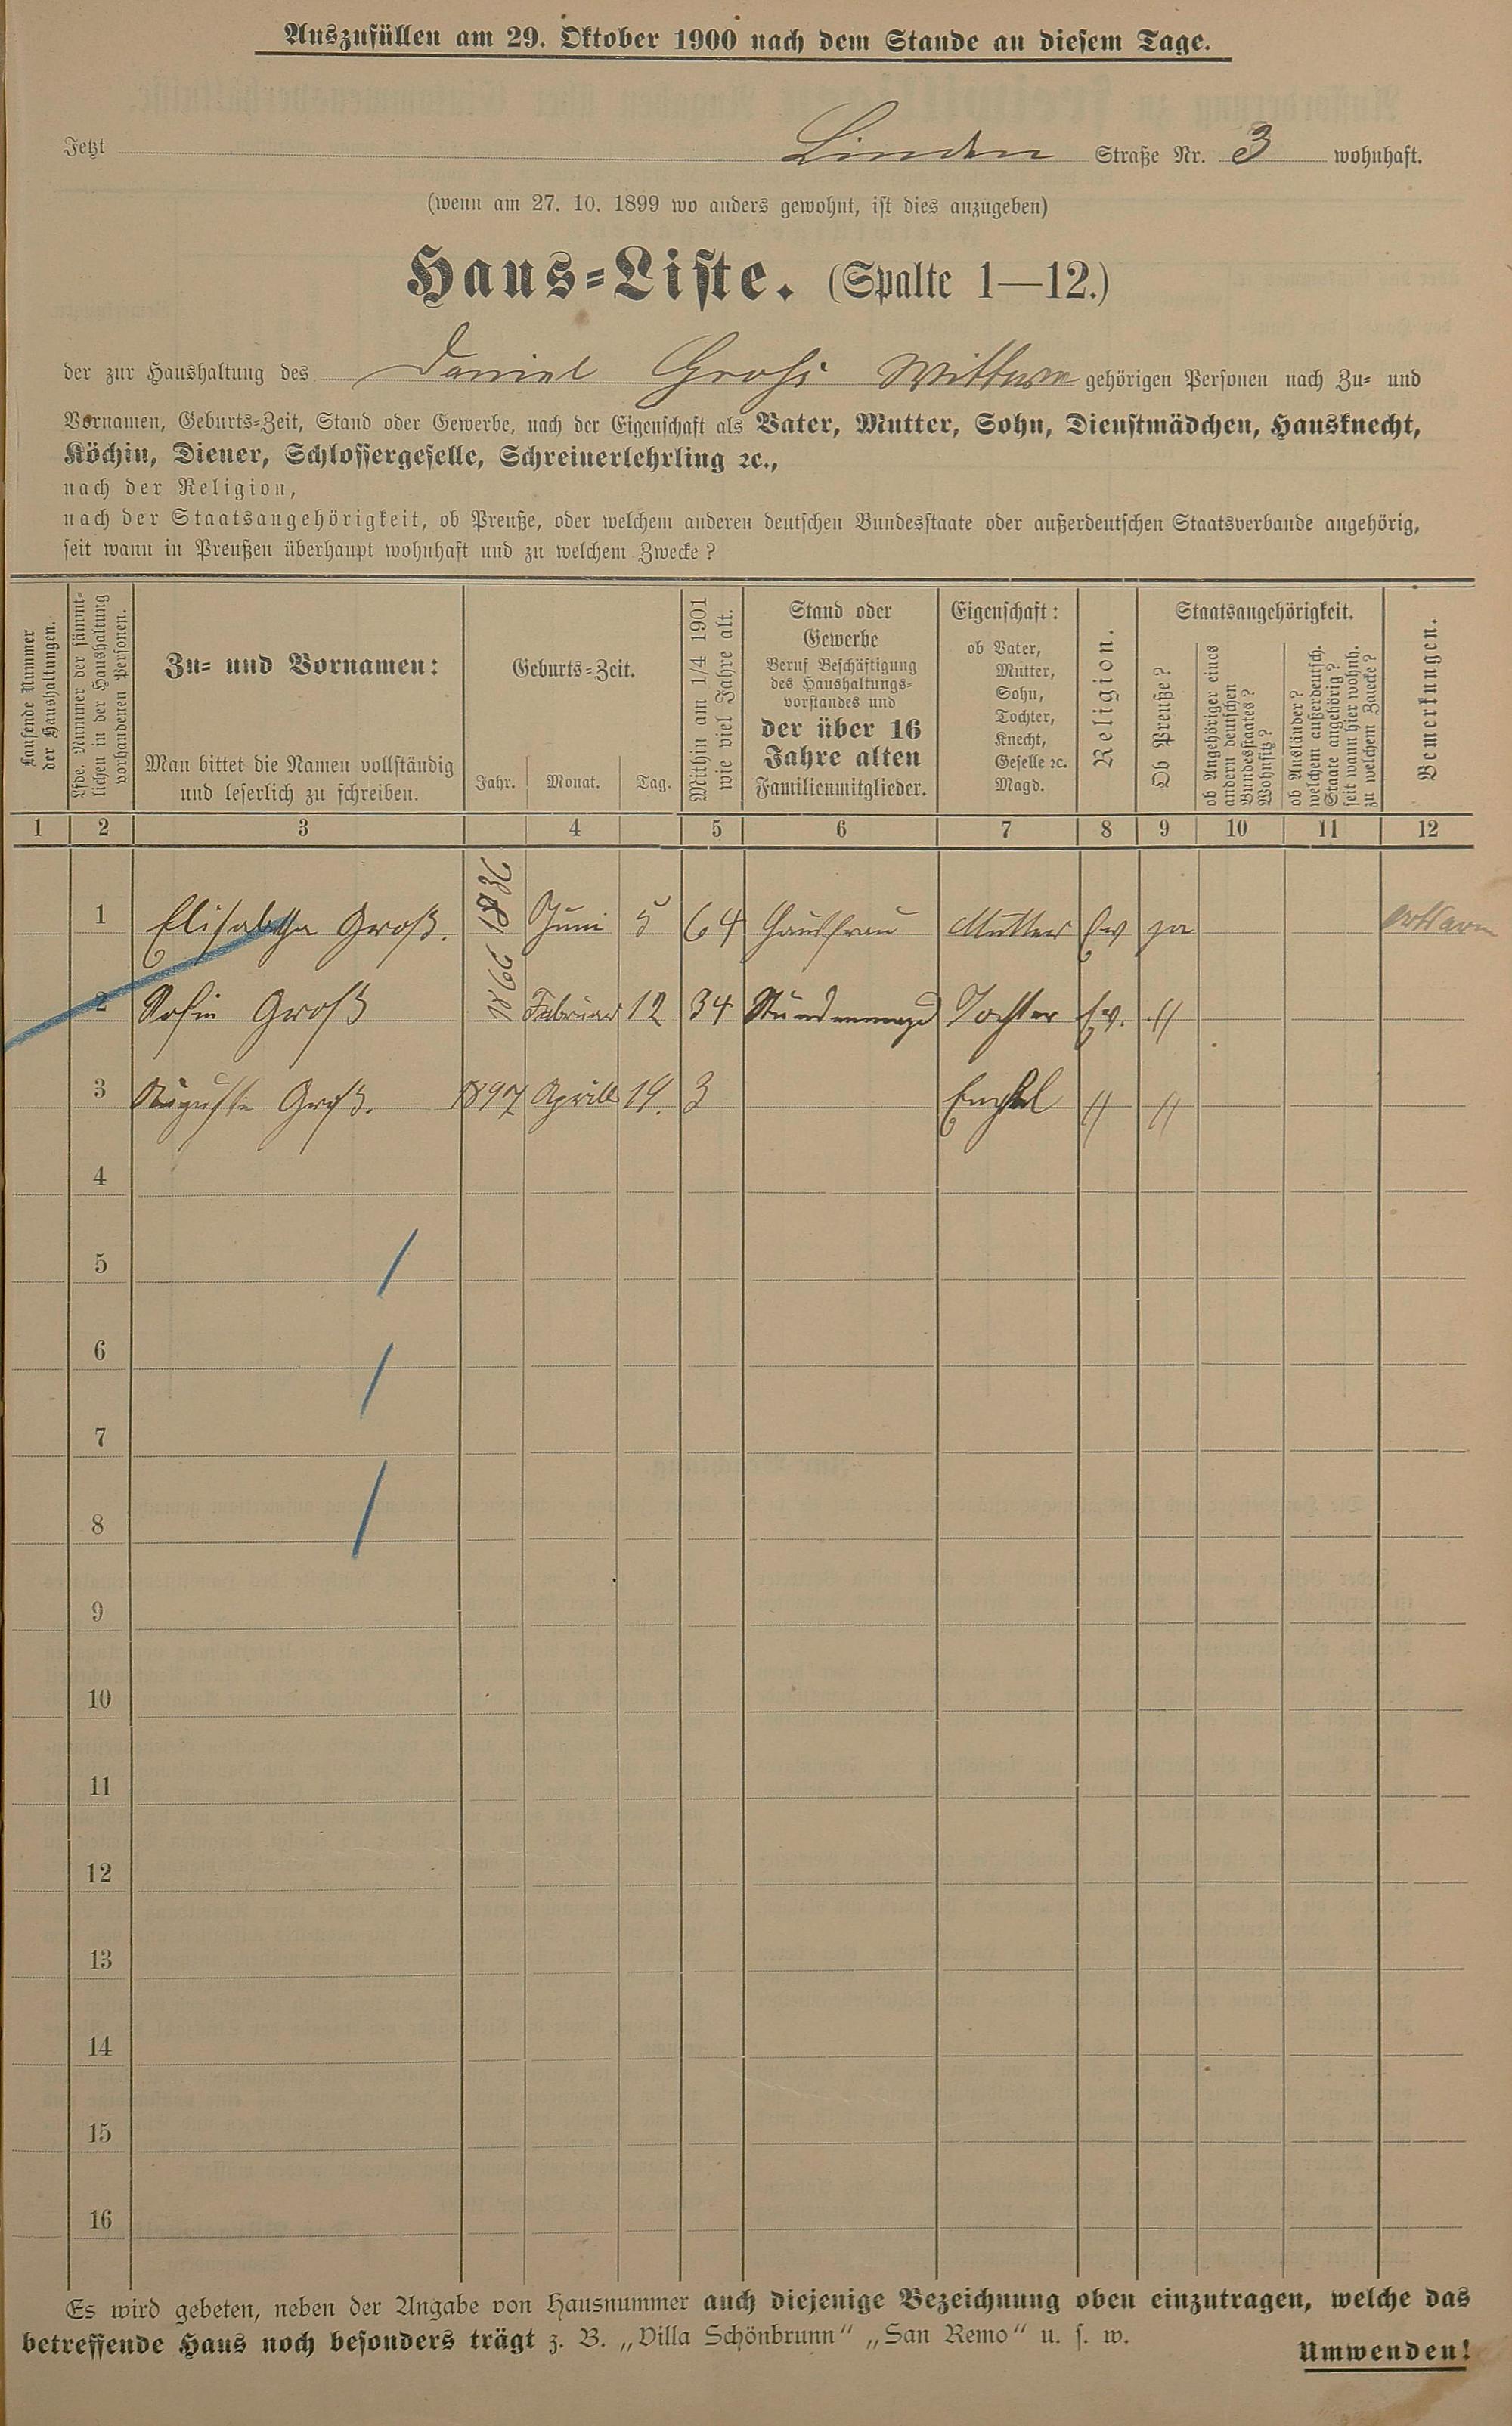 Auszufüllen am 29. Oktober 1900 nach dem Stande an diesem Tage.
Jetzt Linden Straße Nr. 3 wohnhaft.
(wenn am 27. 10. 1899 wo anders gewohnt, ist dies anzugeben)
Haus-Liste. (Spalte 1—12.)
der zur Haushaltung des Daniel Groß Wittwe gehörigen Personen nach Zu- und
Vornamen, Geburts-Zeit, Stand oder Gewerbe, nach der Eigenschaft als Vater, Mutter, Sohn, Dienstmädchen, Hausknecht,
Köchin, Diener, Schlossergeselle, Schreinerlehrling ꝛc.,
nach der Religion,
nach der Staatsangehörigkeit, ob Preuße, oder welchem anderen deutschen Bundesstaate oder außerdeutschen Staatsverbande angehörig,
seit wann in Preußen überhaupt wohnhaft und zu welchem Zwecke?
Laufende Nummer
der Haushaltungen.
Lfde. Nummer der sämmt-
lichen in der Haushaltung
vorhandenen Personen.
Zu- und Vornamen:
Man bittet die Namen vollständig
und leserlich zu schreiben.
Geburts-Zeit.
Jahr. Monat. Tag.
Mithin am 1/4 1901
wie viel Jahre alt.
Stand oder
Gewerbe
Beruf Beschäftigung
des Haushaltungs-
vorstandes und
der über 16
Jahre alten
Familienmitglieder.
Eigenschaft:
ob Vater,
Mutter,
Sohn,
Tochter,
Knecht,
Geselle ꝛc.
Magd.
Religion.
Staatsangehörigkeit.
Ob Preuße?
ob Angehöriger eines
andern deutschen
Bundesstaates?
Wohnsitz?
ob Ausländer?
welchem außerdeutsch.
Staate angehörig?
seit wann hier wohnh.
zu welchem Zwecke?
Bemerkungen.
1 2 3 4 5 6 7 8 9 10 11 12
1 Elisabetha Groß. 1836 Juni 5 64 Hausfrau Mutter Ev ja
2 Sofie Groß 1866 Februar 12 34 Stundenmagd Tochter Ev. "
3 Auguste Groß. 1897 Aprill 19. 3 Enkel " "
4
5
6
7
8
9
10
11
12
13
14
15
16
Es wird gebeten, neben der Angabe von Hausnummer auch diejenige Bezeichnung oben einzutragen, welche das
betreffende Haus noch besonders trägt z. B. „Villa Schönbrunn" „San Remo" u. s. w.
Umwenden!